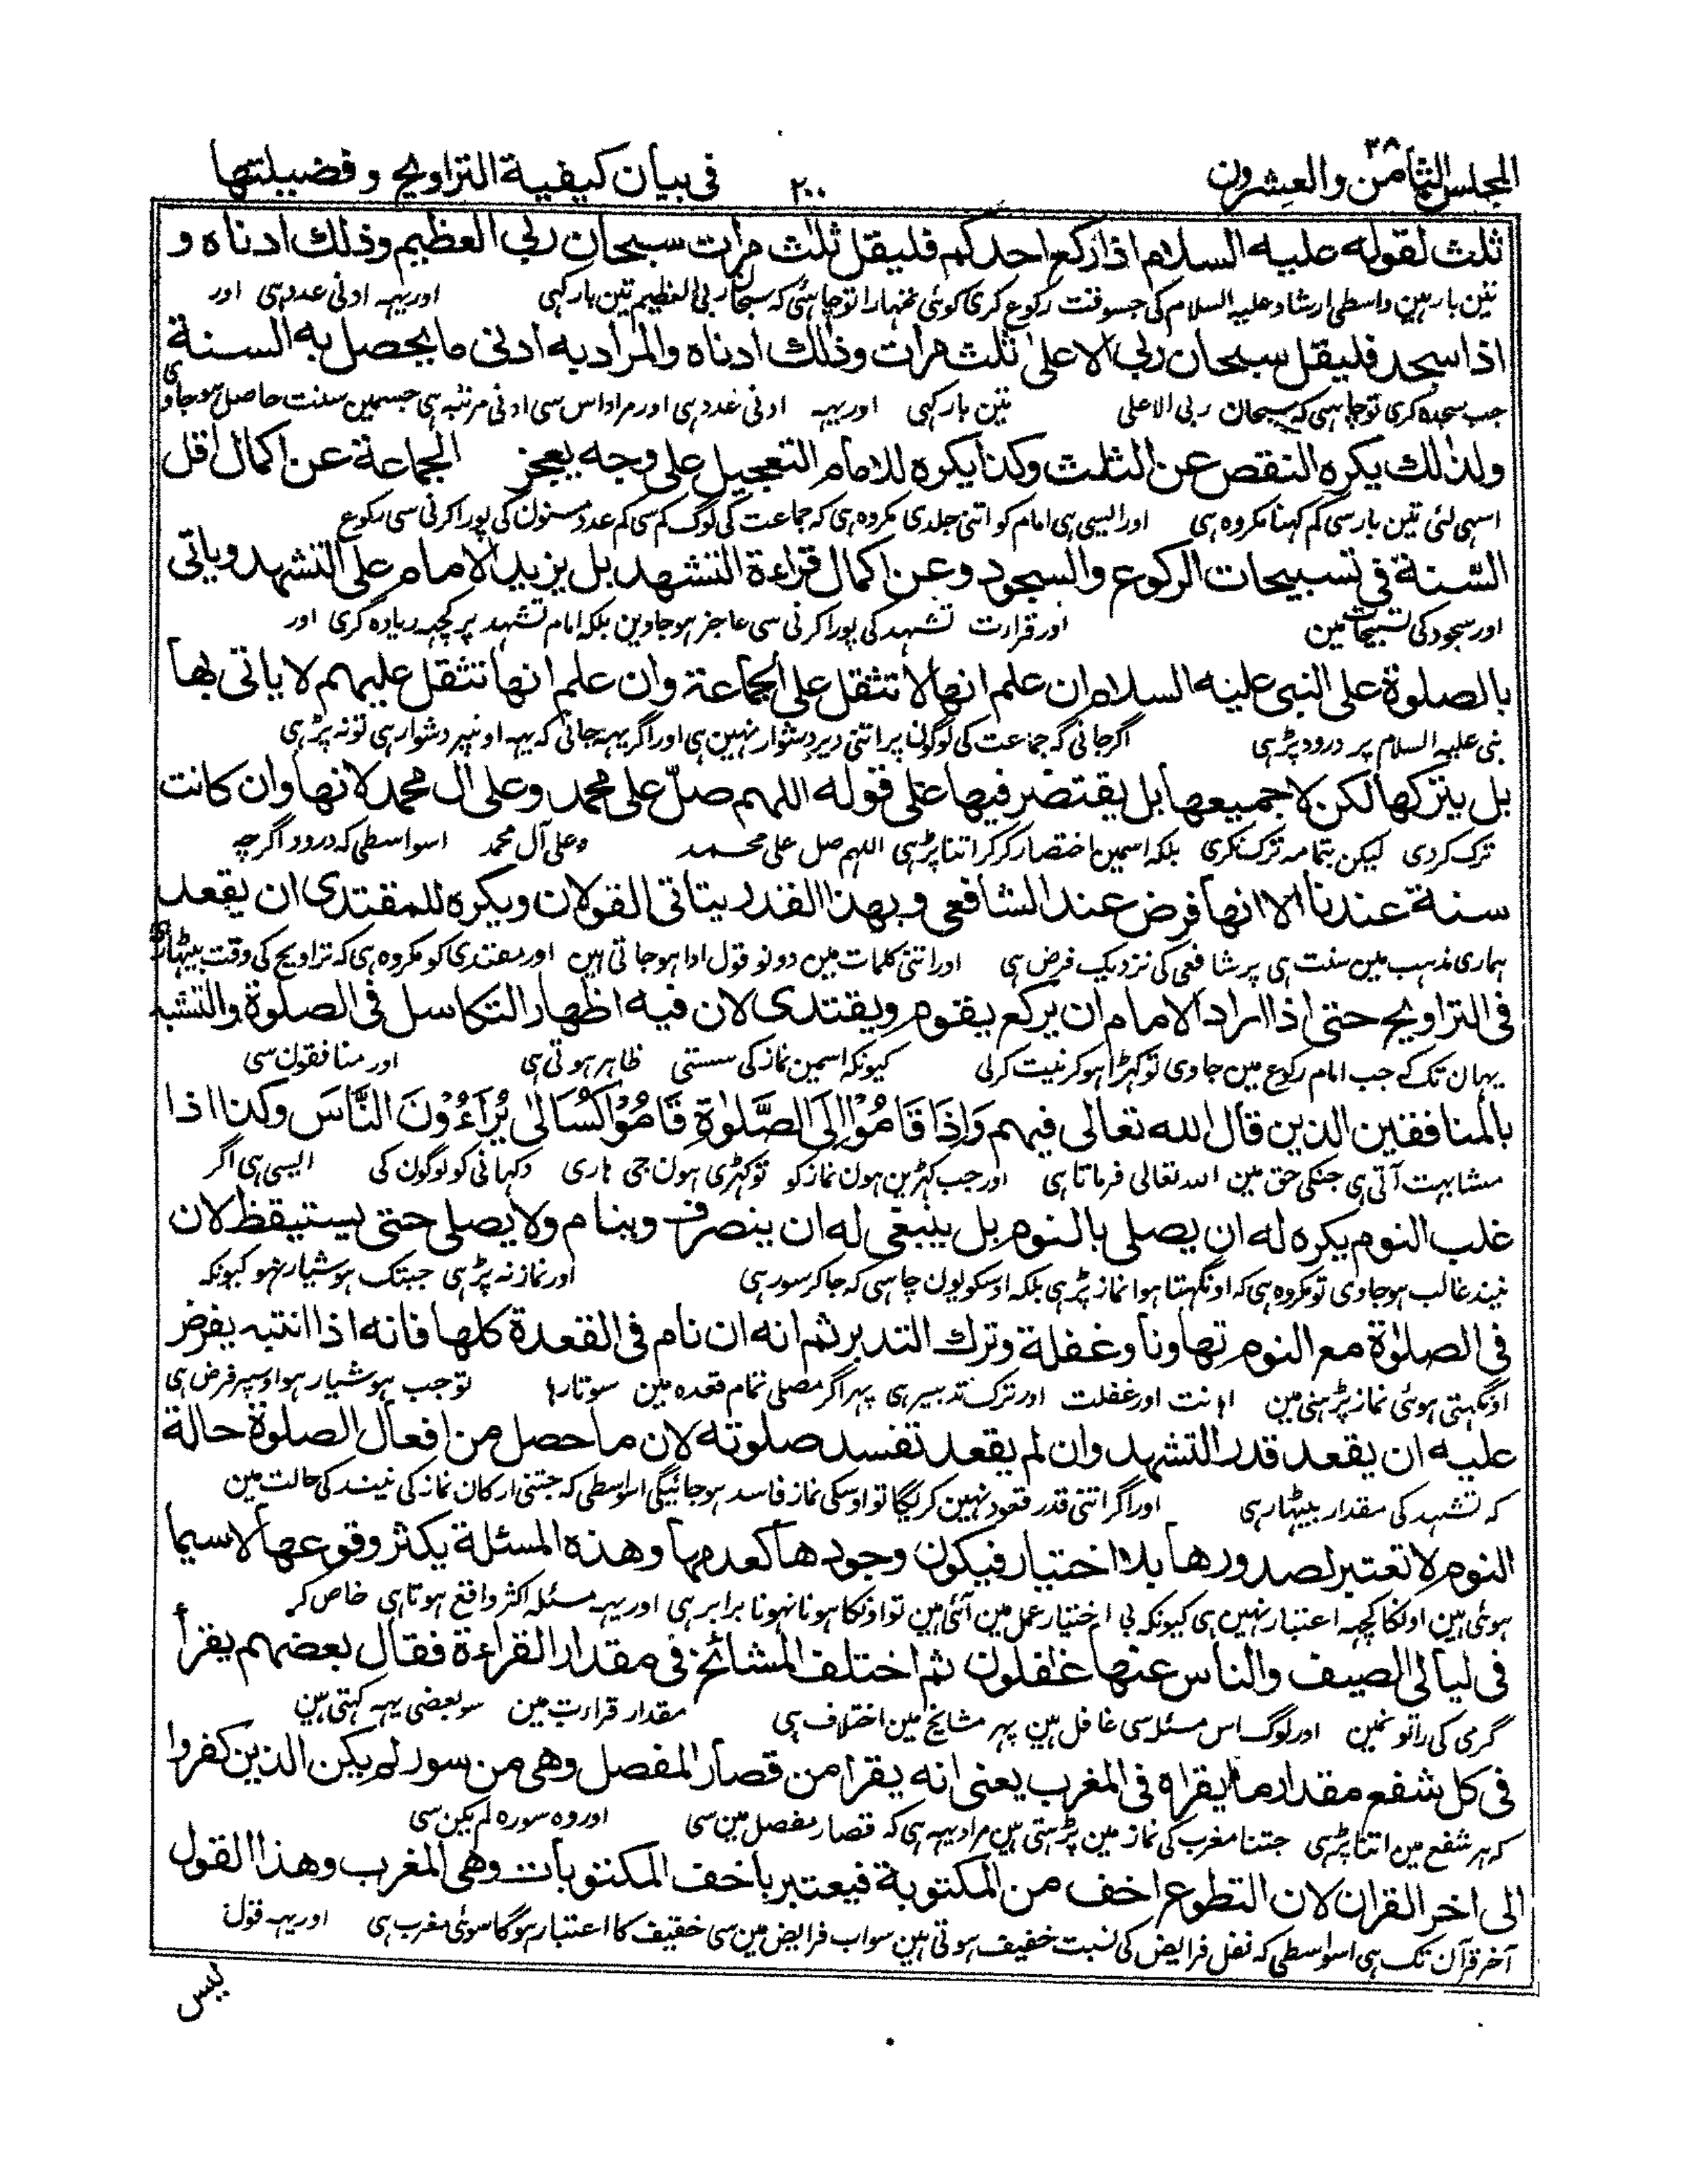 المجلس الثامن والعشرون ٢٨ ٢٠٠ فى بيان كيفية التراويح وفضيلتها
ثلث لقوله عليه السلام اذا ركع احدكم فليقل ثلث مرات سبحان ربى العظيم وذلك ادناه و
تین بار ہین واسطی ارشاد علیہ السلام کی جسوقت رکوع کری کوئی تمہارا تو چاہئی کہ سبحان ربی العظیم تین بار کہی اور یہہ ادنی عدد ہی اور
اذا سجد فليقل سبحان ربى الاعلى ثلث مرات وذلك ادناه والمراد به ادنى ما يحصل به السنة
جب سجدہ کری تو چاہئی کہ سبحان ربی الاعلی تین بار کہی اور یہہ ادنی عدد ہی اور مراد اس سی ادنی مرتبہ ہی جسمین سنت حاصل ہوجاوی
ولذلك يكره النقص عن الثلث وكذا يكره للامام التعجيل على وجه يعجز الجماعة عن اكمال اقل
اسہی لئی تین بار سی کم کہنا مکروہ ہی اور ایسی ہی امام کو اتنی جلدی مکروہ ہی کہ جماعت کی لوگ کم سی کم عدد مسنون کی پورا کرنی سی رکوع
السنة فى تسبيحات الركوع والسجود وعن اكمال قراءة التشهد بل يزيد الامام على التشهد وياتى
اور سجود کی تسبیحات مین اور قرارت تشہد کی پورا کرنی سی عاجز ہوجاوین بلکہ امام تشہد پر کچہہ زیادہ کری اور
بالصلوة على النبى عليه السلام ان علم انها لا تثقل على الجماعة وان علم انها تثقل عليهم لا ياتى بها
نبی علیہ السلام پر درود پڑہی اگر جانی کہ جماعت کی لوگون پر اتنی دیر دشوار نہین ہی اور اگر یہہ جانی کہ یہہ اونپر دشوار ہی تو نہ پڑہی
بل يتركها لكن لا جميعها بل يقتصر فيها على قوله اللهم صلّ على محمد وعلى ال محمد لانها وان كانت
ترک کردی لیکن بتمامہ ترک نکری بلکہ اسمین اختصار کرکر اتنا پڑہی اللہم صل علی محمد وعلی آل محمد اسواسطی کہ درود اگرچہ
سنة عندنا الا انها فرض عند الشافعى وبهذا القدر يتاتى القولان ويكره للمقتدى ان يقعد
ہماری مذہب مین سنت ہی پر شافعی کی نزدیک فرض ہی اور اتنی کلمات مین دونو قول ادا ہوجاتی ہین اور مقتدی کو مکروہ ہی کہ تراویح کی وقت بیٹہا رہی
فى التراويح حتى اذا اراد الامام ان يركع يقوم ويقتدى لان فيه اظهار التكاسل فى الصلوة والتشبه
یہان تک کے جب امام رکوع مین جاوی تو کہڑا ہو کر نیت کرلی کیونکہ اسمین نماز کی سستی ظاہر ہوتی ہی اور منافقون سی
بالمنافقين الذين قال الله تعالى فيهم وَاِذَا قَامُوْا اِلَى الصَّلٰوةِ قَامُوْا كُسَالٰى يُرَاءُوْنَ النَّاسَ وكذا اذا
مشابہت آتی ہی جنکی حق مین اللہ تعالی فرماتا ہی اور جب کہڑین ہون نماز کو تو کہڑی ہون جی ہاری دکہانی کو لوگون کی ایسی ہی اگر
غلب النوم يكره له ان يصلى بالنوم بل ينبغى له ان ينصرف وينام ولا يصلى حتى يستيقظ لان
نیند غالب ہوجاوی تو مکروہ ہی کہ اونگہتا ہوا نماز پڑہی بلکہ اوسکو یون چاہئی کہ جا کر سو رہی اور نماز نہ پڑہی جبتک ہوشیار نہو کیونکہ
فى الصلوة مع النوم تهاونا وغفلة وترك التدبر ثم انه ان نام فى القعدة كلها فانه اذا انتبه يفرض
اونگہتی ہوئی نماز پڑہنی مین اہانت اور غفلت اور ترک تدبیر ہی پہر اگر مصلی تمام قعدہ مین سوتا رہا تو جب ہوشیار ہوا اوسپر فرض ہی
عليه ان يقعد قدر التشهد وان لم يقعد تفسد صلوته لان ما حصل من افعال الصلوة حالة
کہ تشہد کی مقدار بیٹہا رہی اور اگر اتنی قدر قعود نہین کریگا تو اوسکی نماز فاسد ہوجائیگی اسواسطی کہ جتنی ارکان نماز کی نیند کی حالت مین
النوم لا تعتبر لصدورها بلا اختيار فيكون وجودها كعدمها وهذه المسئلة يكثر وقوعها لا سيما
ہوئی ہین اونکا کچہہ اعتبار نہین ہی کیونکہ بی اختیار عمل مین آئی ہین تو اونکا ہونا نہونا برابر ہی اور یہہ مسئلہ اکثر واقع ہوتا ہی خاص کر
فى ليالى الصيف والناس عنها غافلون ثم اختلف المشائخ فى مقدار القراءة فقال بعضهم يقرأ
گرمی کی راتونمین اور لوگ اس مسئلہ سی غافل ہین پہر مشایخ مین اختلاف ہی مقدار قرارت مین سو بعضی یہہ کہتی ہین
فى كل شفع مقدار ما يقراه فى المغرب يعنى انه يقرا من قصار المفصل وهى من سورة لم يكن الذين كفروا
کہ ہر شفع مین اتنا پڑہی جتنا مغرب کی نماز مین پڑہتی ہین مراد یہہ ہی کہ قصار مفصل مین سی اور وہ سورہ لم یکن سی
الى اخر القران لان التطوع اخف من المكتوبة فيعتبر باخف المكتوبات وهى المغرب وهذا القول
آخر قرآن تک ہی اسواسطی کہ نفل فرایض کی نسبت خفیف ہوتی ہین سو اب فرایض مین سی خفیف کا اعتبار ہوگا سوئی مغرب ہی اور یہہ قول
ليس